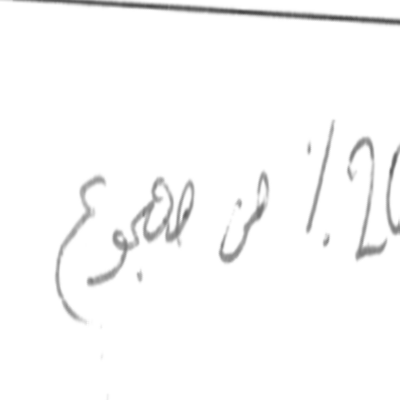 20% من مجموع